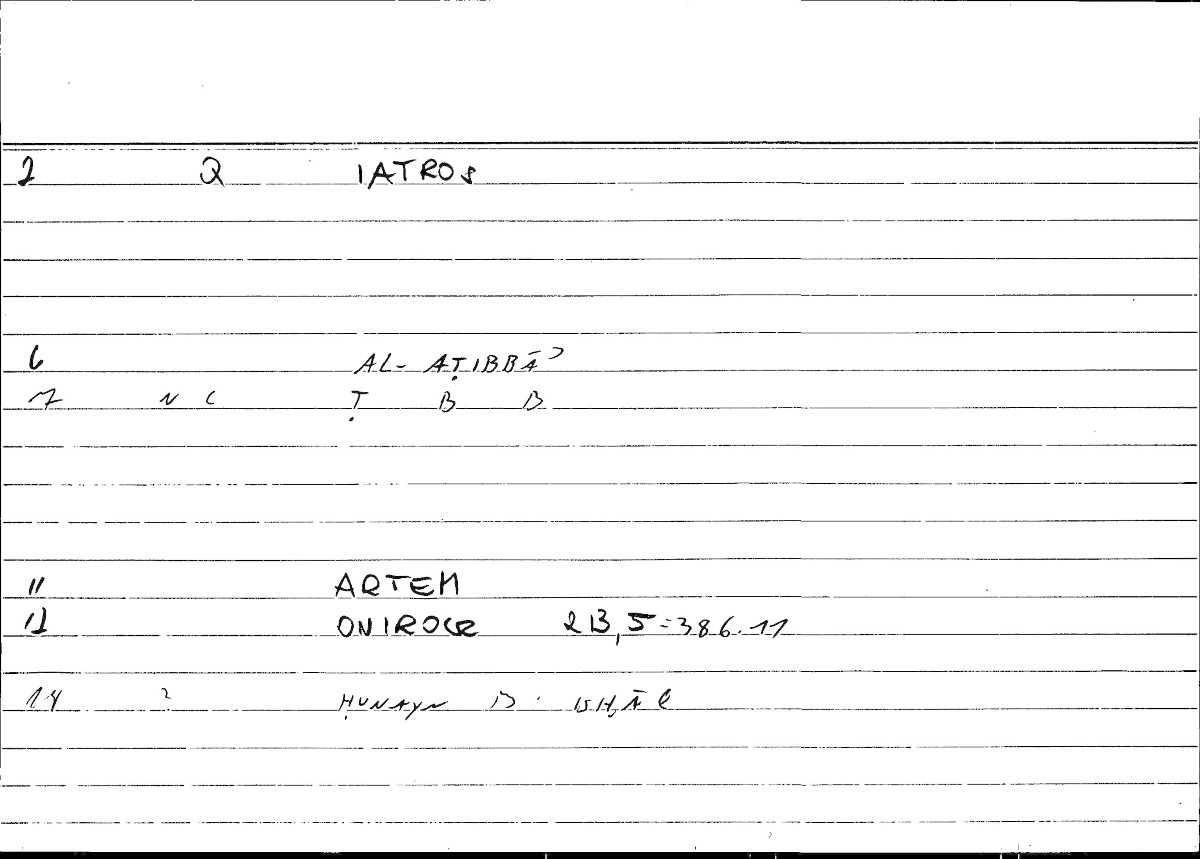 2 Q IATROS
6 AL- AṬIBBĀʾ
7 N C Ṭ B B
11 ARTEM
12 ONIROCR 213,5=386.11
14 2 ḤUNAYN B. ISḤĀQ